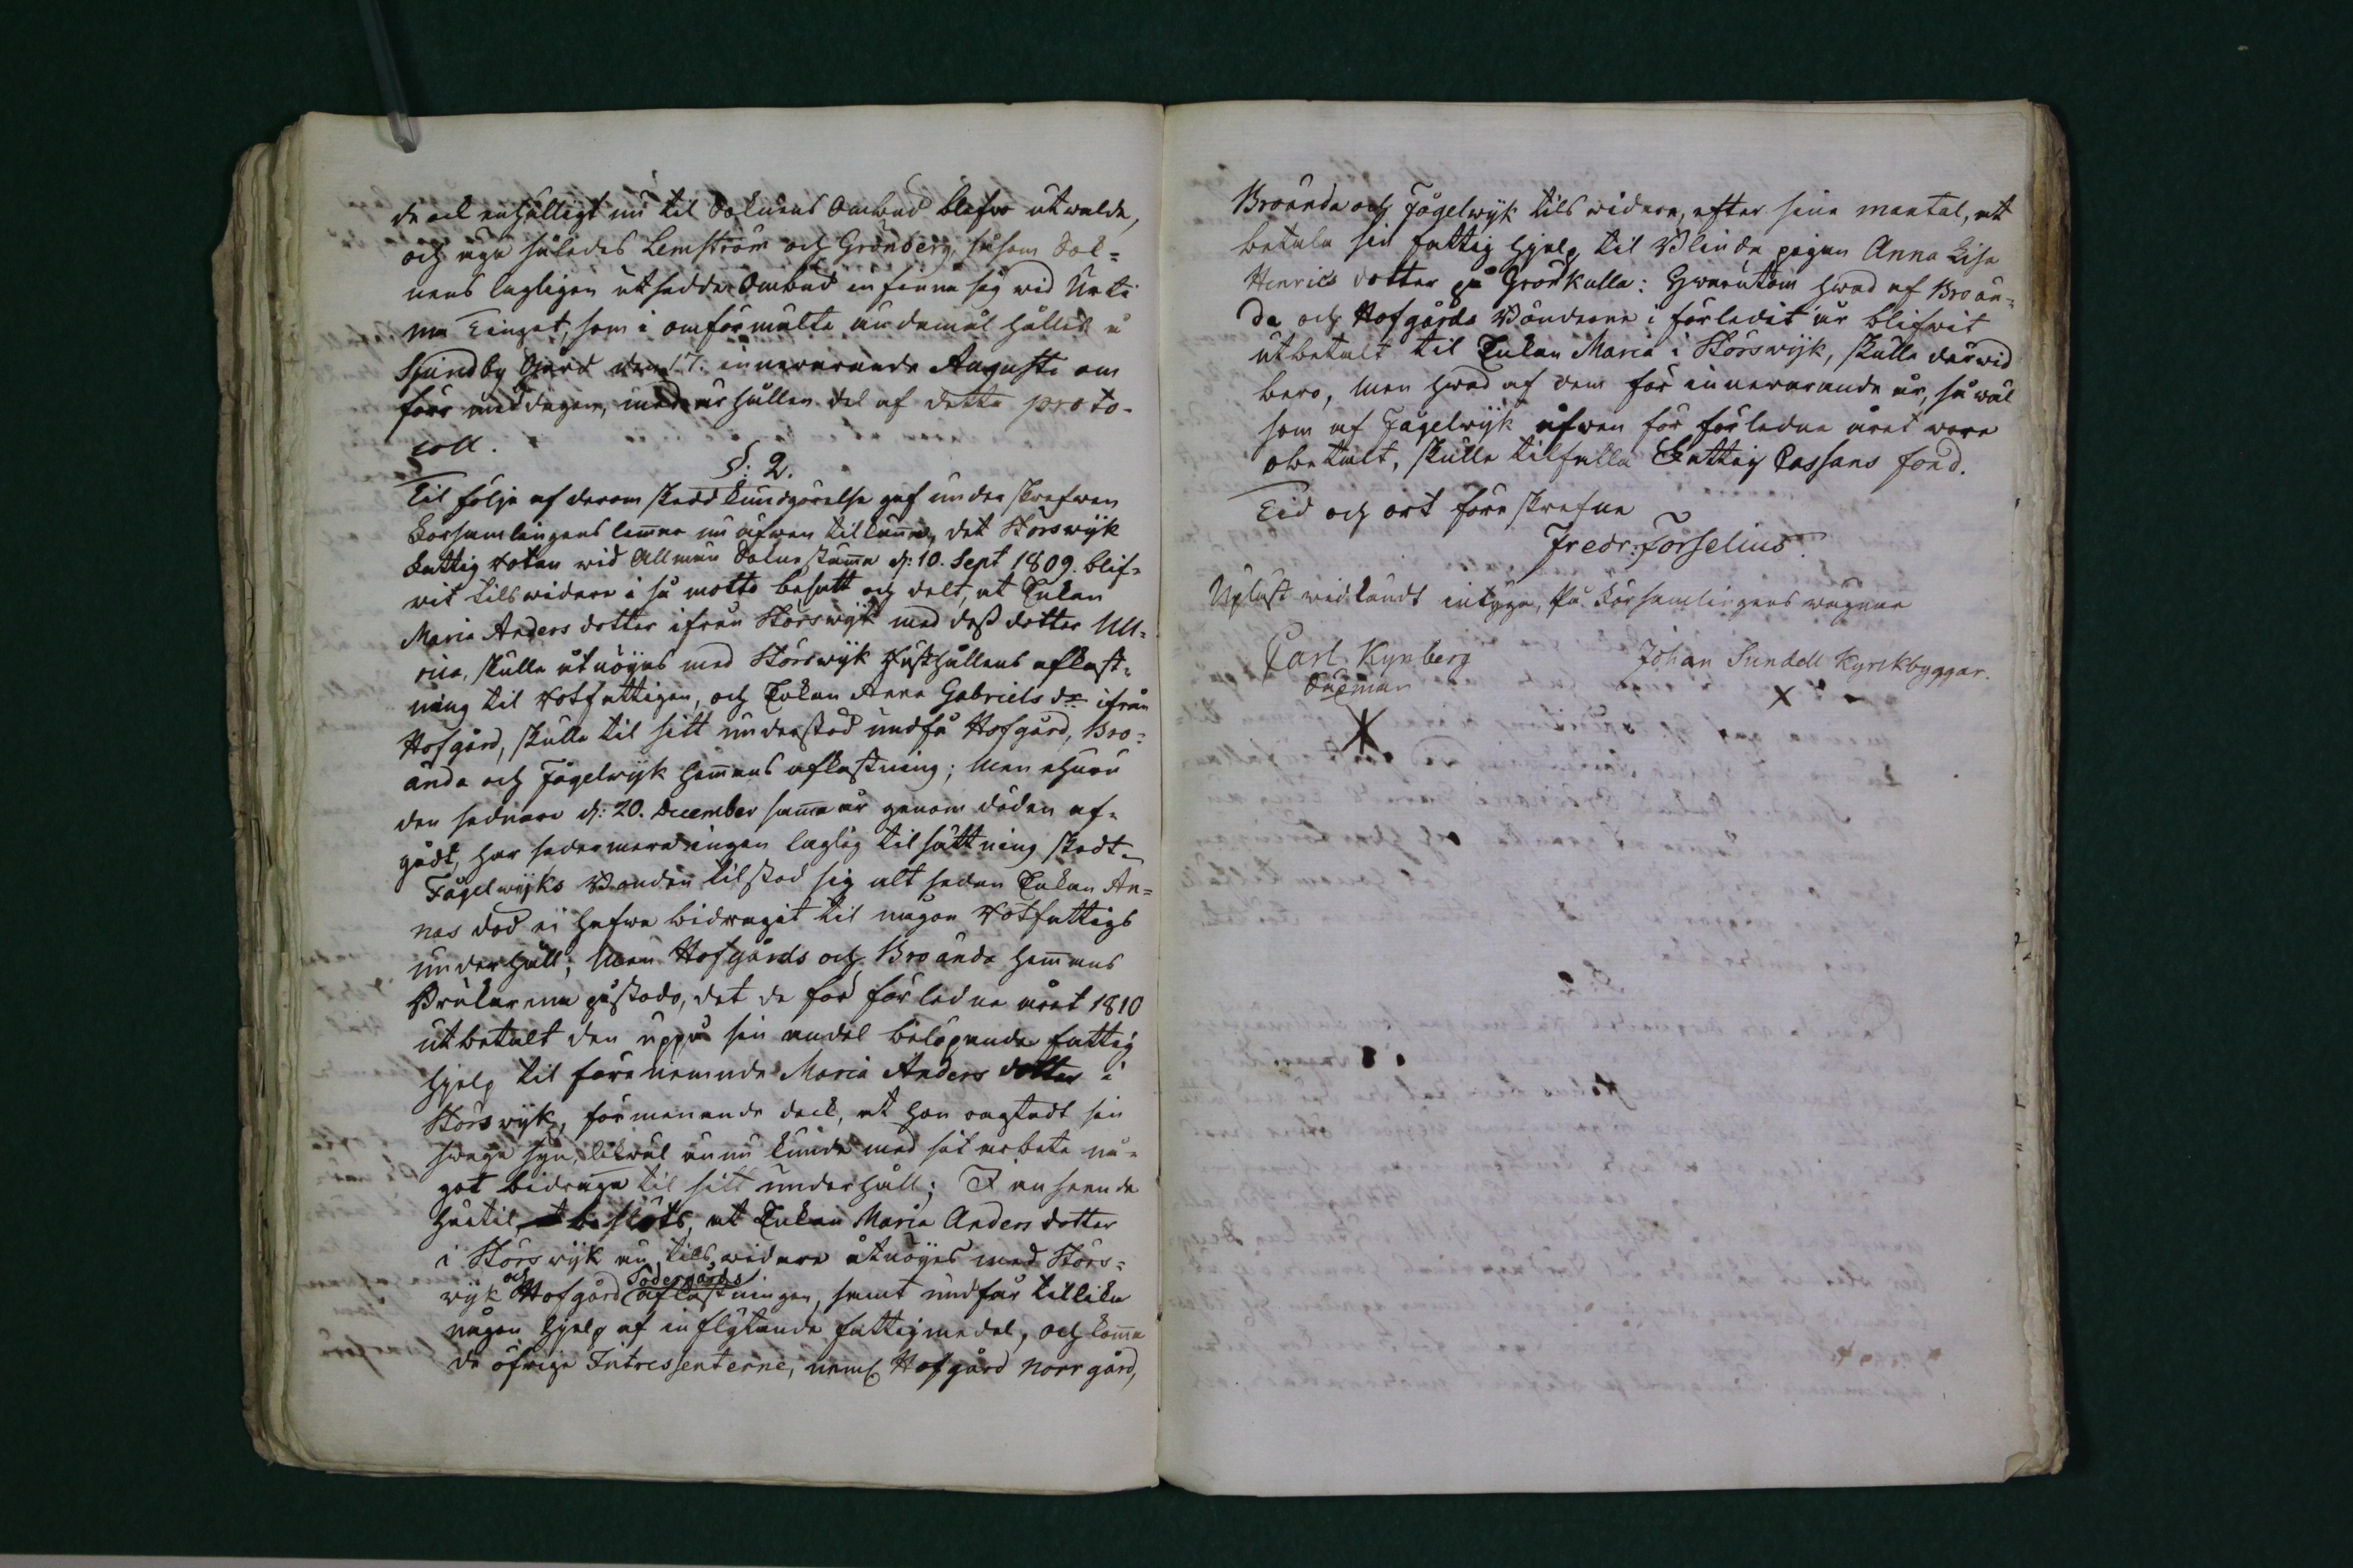 de ock enhälligt nu til Soknens Ombud blefwo utwalde,
och äga således Lemström och Grönberg, såsom Sok-
nens lagligen utsedde Ombud infinna sig wid Urti-
ma Tinget, som i omförmälte ändamål hålles å
Sjundby Gård den 17. innewarande Augusti om
före middagen, med erhållen del af detta proto-
coll.
§: 2.
Til följe af derom skedd kundgörelse gaf underskrefwen
Församlingens lemmar nu äfwen tilkänna, det Störswijk
Fattig Rotan wid Allmän Soknestämma d: 10. Sept 1809. blif-
wit tilswidare i så motto besatt och delt, at Enkan
Maria Anders dotter ifrån Störswijk med dess dotter Ull-
rica, skulle åtnöijas med Störswijk Hushållens aflast-
ning til Rotfattigen, och Enkan Anna Gabriels dr ifrån
Hofgård, skulle til sitt understöd undfå Hofgård, Bro-
ända och Fågelwijk Hemmans aflastning; Men ehuru
den sednare d: 20. December samma år genom döden af-
gådt, har sedermera ingen laglig tilsättning skedt.
Fågelwijks Bonden tilstod sig alt sedan Enkan An-
nas död ei hafwa bidragit til någon Rotfattigs
underhåll; Men Hofgårds och Broända Hemmans
Brukarena påstodo, det de för förledne året 1810
utbetalt den uppå sin andel belöpande fattig
hjelp til förenemnde Maria Anders dotter i
Störswijk, förmenande dock, at hon oagtadt sin
swaga syn, likwäl ännu kunde med sit arbete nå-
got bidraga til sitt underhåll; I anseende
härtil beslöts, at Enkan Maria Anders dotter
i Störswijk nu tilswidare åtnöijes med Störs-
wijk och Hofgård Södergårds aflastningen, samt undfår tillika
någon hjelp af inflytande fattigmedel, och komma
de öfrige Intressenterne, neml Hofgård Norrgård,
Broända och Fågelwijk tilswidare, efter sina mantal, at
betala sin fattig hjelp til Blinda pigan Anna Lisa
Henrics dotter på Grönkulla: Hwarutom hwad af Broän-
da och Hofgårds Bönderne i förledit år blifwit
utbetalt til Enkan Maria i Störswijk, skulle derwid
bero, Men hwad af dem för innewarande år, så wäl
som af Fågelwijk äfwen för förledne året wore
obetalt, skulle tilfalla Fattig Cassans fond.
Tid och ort föreskrefne
Fredr: Forselius.
Upläst widkändt intyga, På Församlingens wägnar
Carl Kynberg Johan Sundell Kyrckbyggar.
Sexman